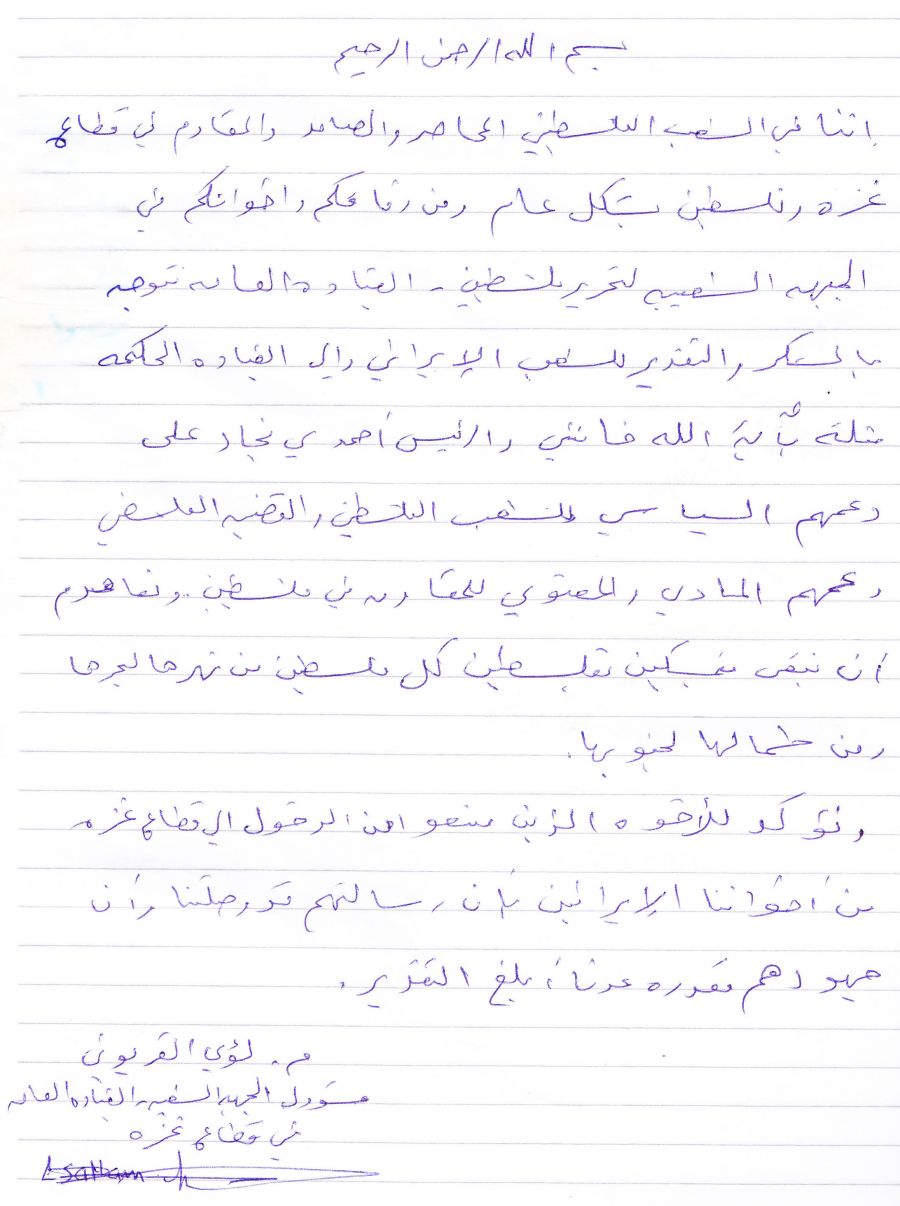 بسم الله الرحمن الرحيم
إننا في الشعب الفلسطيني المحاصر والصامد والمقاوم في قطاع
غزه وفلسطين بشكل عام ومن رفاقكم واخوانكم في
الجبهه الشعبيه لتحرير فلسطين - القياده العامه نتوجه
بالشكر والتقدير للشعب الإيراني والى القياده الحكيمه
ممثلة بآية الله خامنئي والرئيس أحمدي نجاد على
دعمهم السياسي للشعب الفلسطيني والقضيه الفلسطيني
دعمهم المادي والمعنوي للمقاومه في فلسطين. ونعاهدهم
أن نبقى متمسكين بفلسطين كل فلسطين من نهرها لبحرها
ومن شمالها لجنوبها.
ونؤكد للأخوه الذين منعوا من الدخول الى قطاع غزه
من أخواننا الإيرانين بأن رسالتهم قد وصلتنا وأن
جهودهم مقدره عندنا بلغ التقدير.
م. لؤي القريوتي
مسؤول الجبهه الشعبيه - القياده العامه
في قطاع غزه